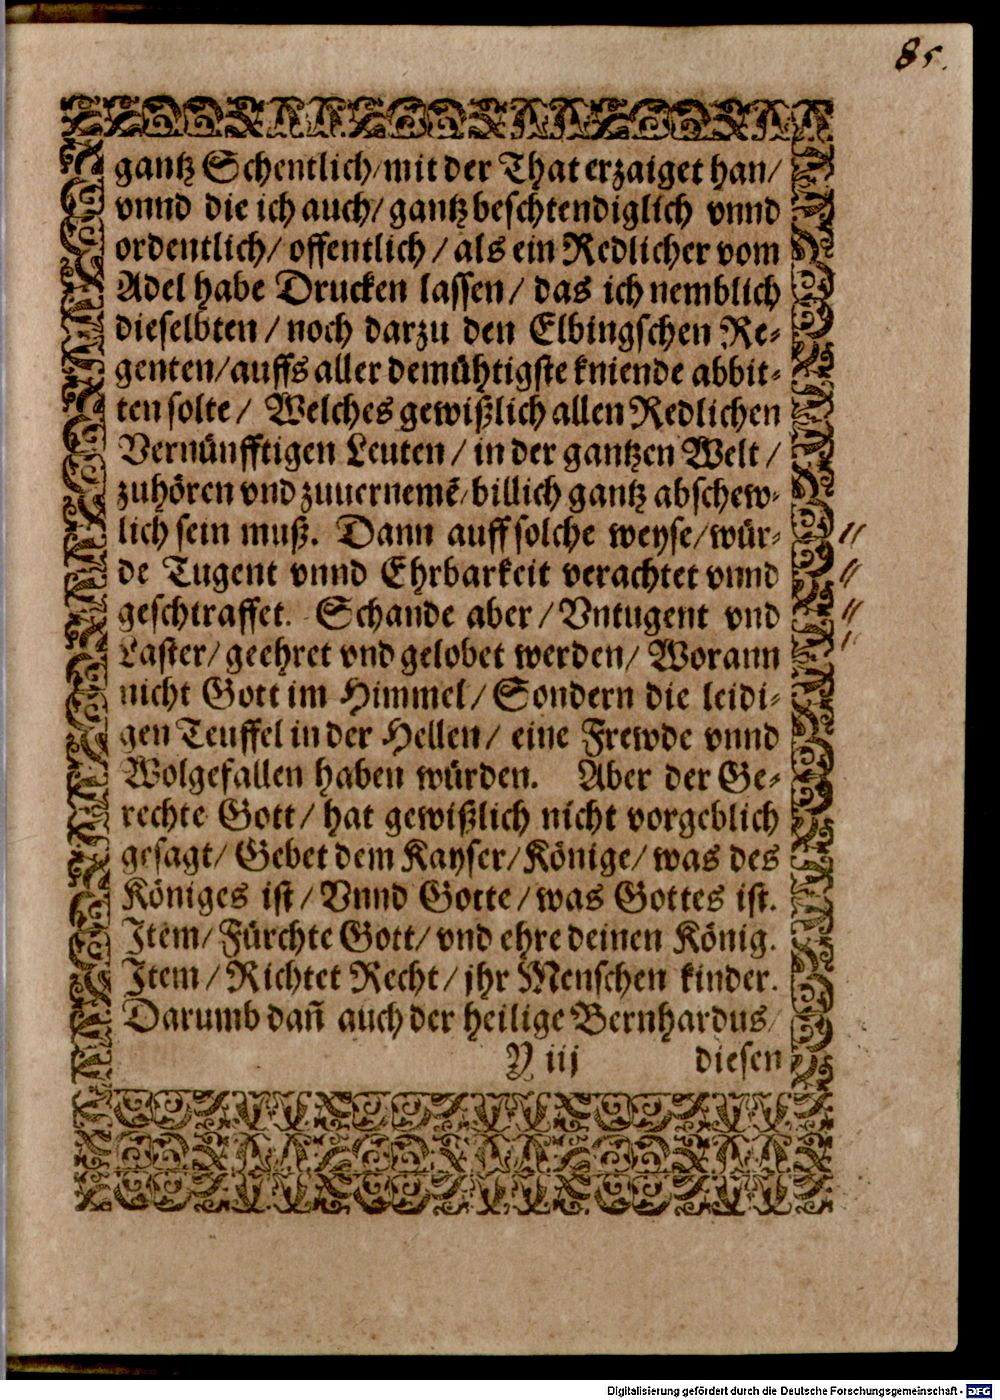 85.
gantz Schentlich/mit der That erzaiget han/
vnnd die ich auch/ gantz beschtendiglich vnnd
ordentlich/ offentlich / als ein Redlicher vom
Adel habe Drucken lassen/ das ich nemblich
dieselbten / noch darzu den Elbingschen Re-
genten/auffs aller demühtigste kniende abbit-
ten solte / Welches gewißlich allen Redlichen
Vernünfftigen Leuten / in der gantzen Welt /
zuhören vnd zuuernemē/ billich gantz abschew-
lich sein muß. Dann auff solche weyse/wür-
de Tugent vnnd Ehrbarkeit verachtet vnnd
geschtraffet. Schande aber / Vntugent vnd
Laster/ geehret vnd gelobet werden/ Worann
nicht Gott im Himmel/ Sondern die leidi-
gen Teuffel in der Hellen/ eine Frewde vnnd
Wolgefallen haben würden. Aber der Ge-
rechte Gott/ hat gewißlich nicht vorgeblich
gesagt/ Gebet dem Kayser/Könige/ was des
Königes ist / Vnnd Gotte / was Gottes ist.
Item/ Fürchte Gott/ vnd ehre deinen König.
Item / Richtet Recht / jhr Menschen kinder.
Darumb dañ auch der heilige Bernhardus/
Y iij diesen
Digitalisierung gefördert durch die Deutsche Forschungsgemeinschaft - DFG